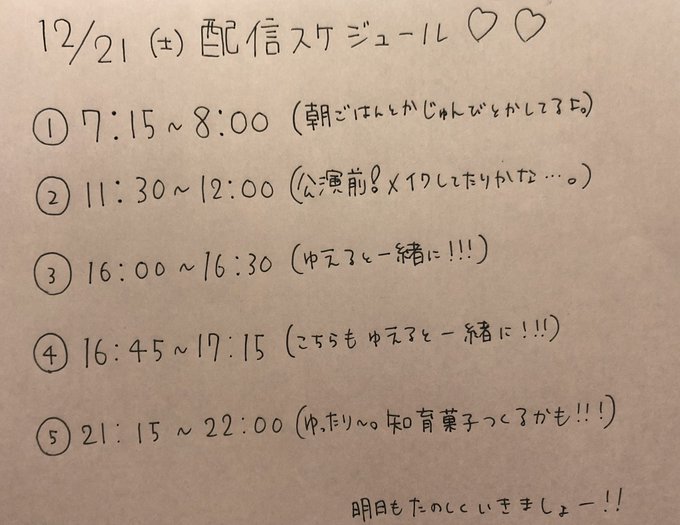 12/21 (土) 配信スケジュール♡♡
① 7:15~8:00 (朝ごはんとかじゅんびとかしてるよ。)
② 11:30~12:00 (公演前!メイクしてたりかな…。)
③ 16:00~16:30 (ゆえると一緒に!!!)
④ 16:45~17:15 (こちらもゆえると一緒に!!!)
⑤ 21:15~22:00 (ゆったり~。知育菓子つくるかも!!!)
明日もたのしくいきましょー!!